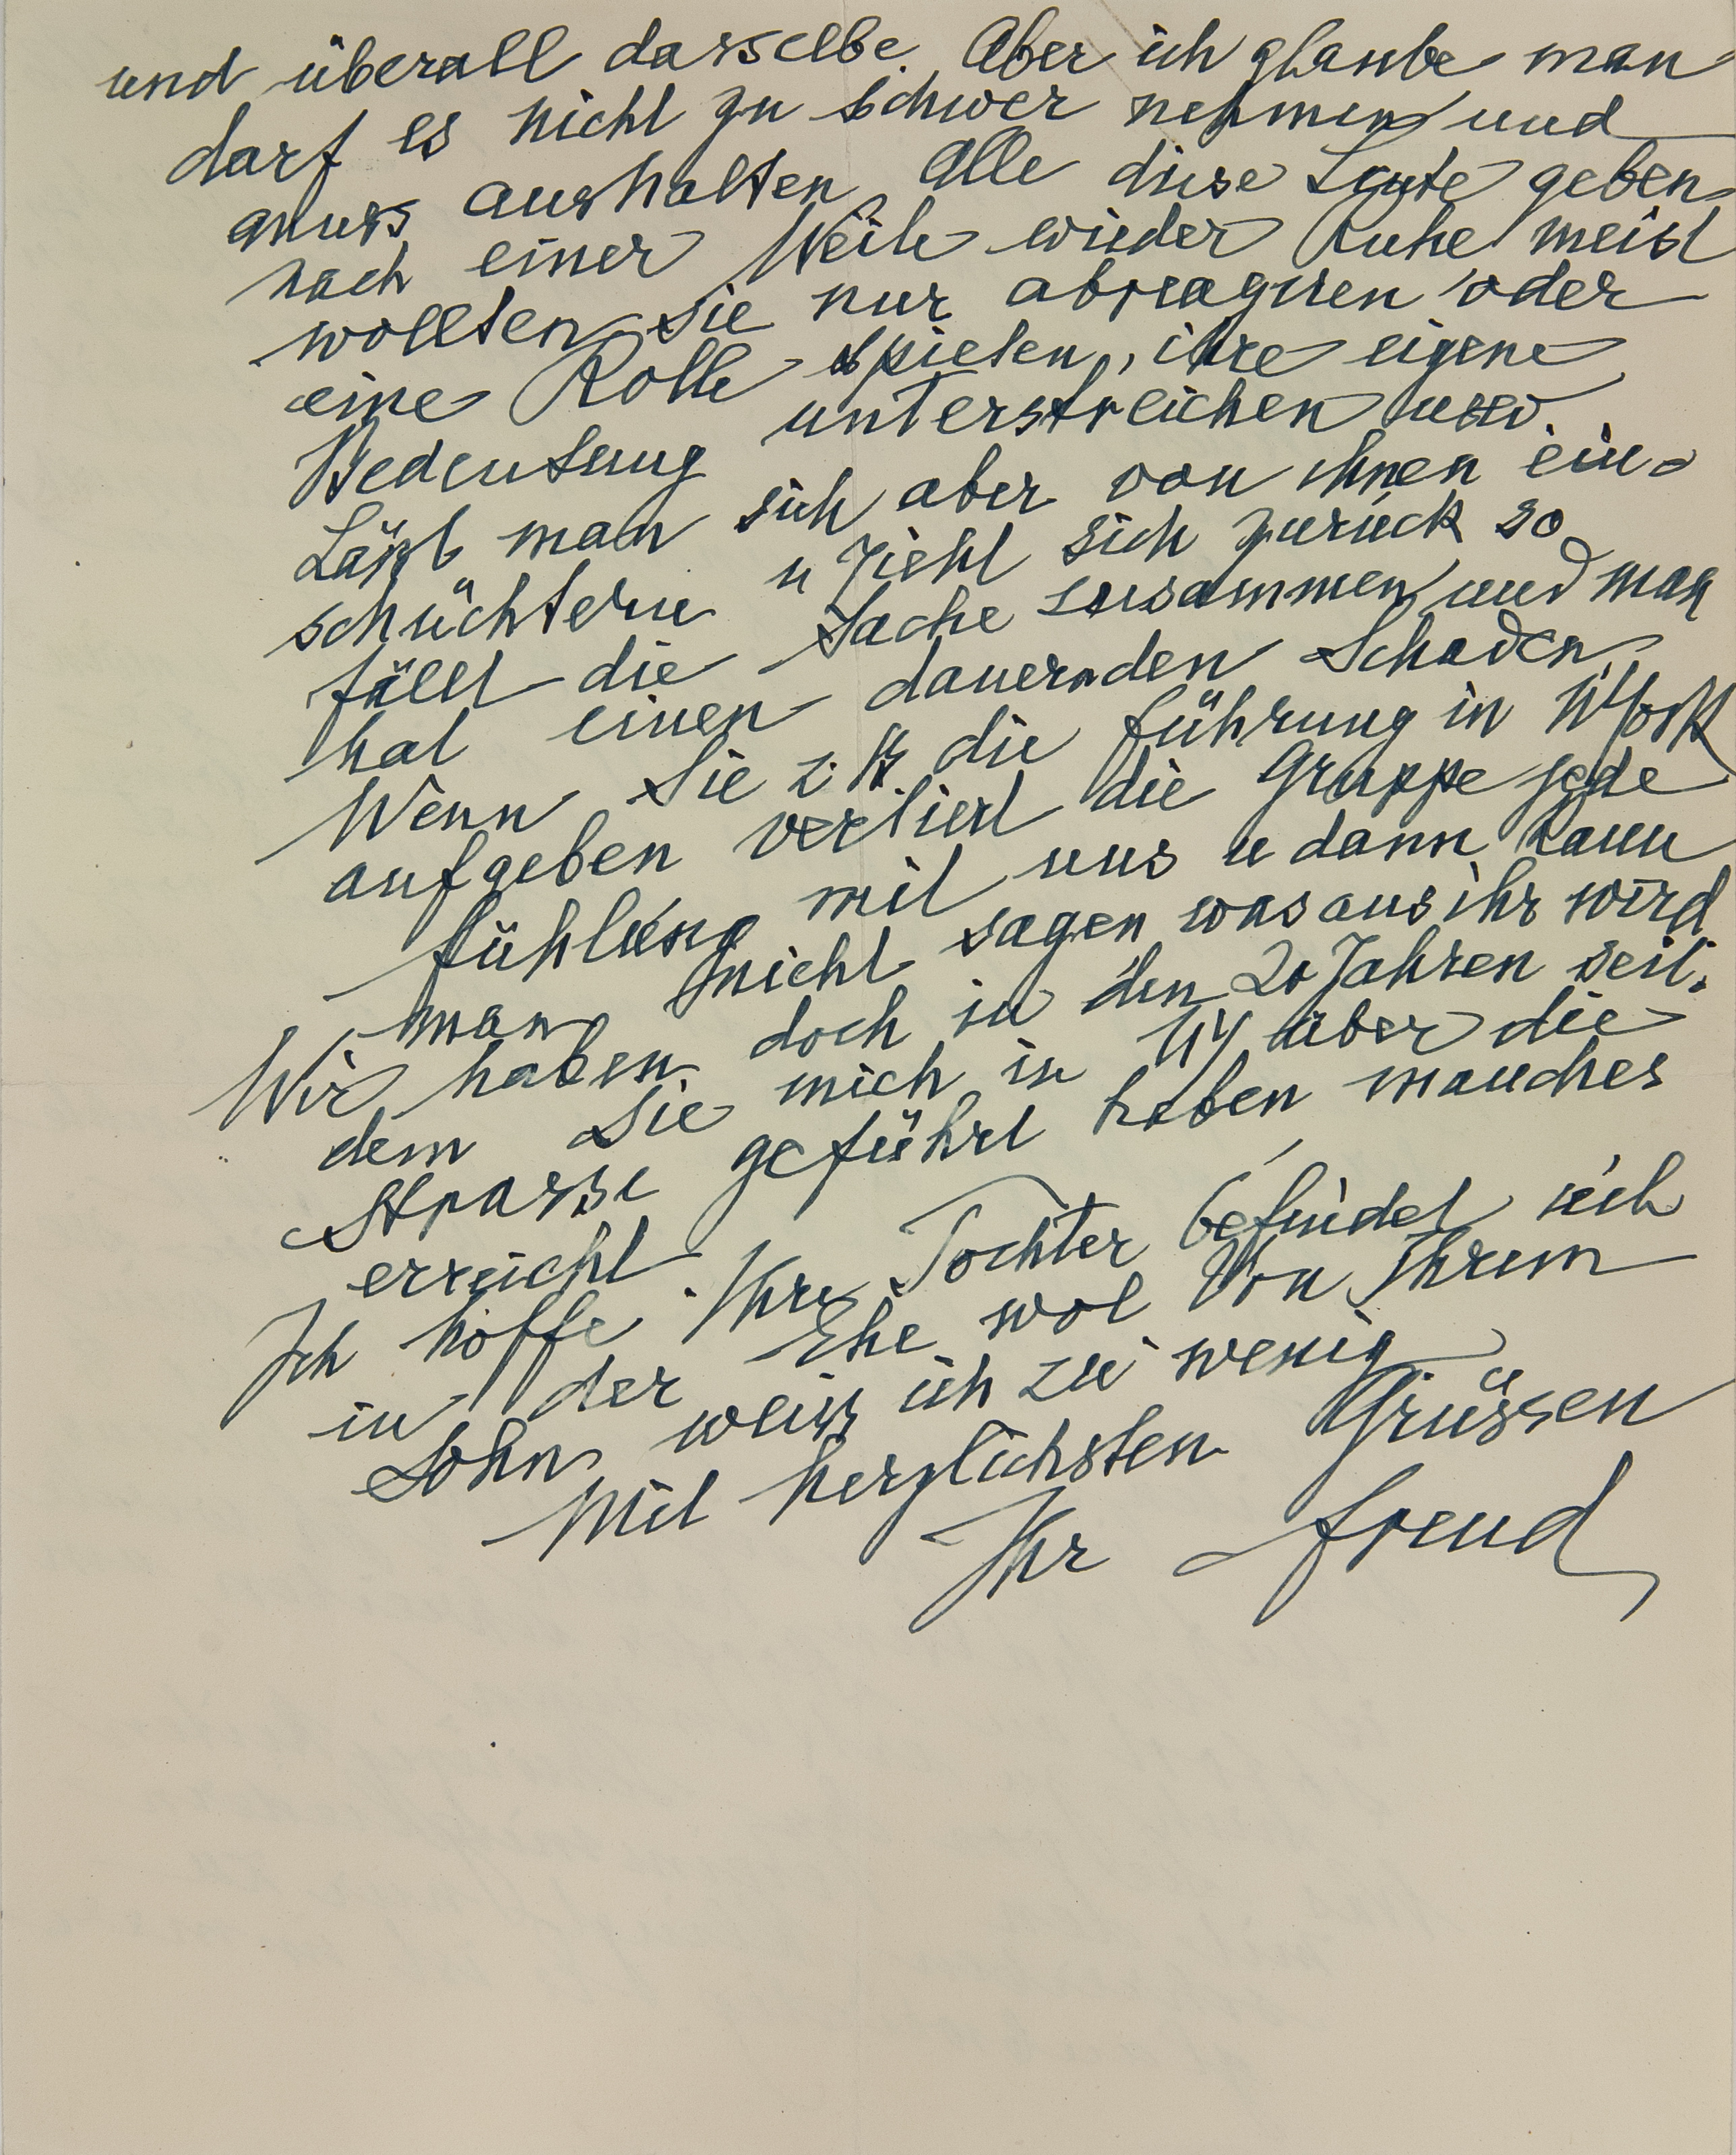 und überall dasselbe. Aber ich glaube man
darf es nicht zu schwer nehmen und
muss aushalten. Alle diese Leute geben
nach einer Weile wieder Ruhe meist
wollten sie nur abreagiren oder
eine Rolle spielen, ihre eigene
Bedeutung unterstreichen usw.
Läßt man sich aber von ihnen ein-
schüchtern u zieht sich zurück so
fällt die Sache zusammen und man
hat einen dauernden Schaden.
Wenn Sie z. B. die Führung in NYork
aufgeben verliert die Gruppe jede
Fühlung mit uns u dann kann
man nicht sagen was aus ihr wird
Wir haben doch in den 20 Jahren seit-
dem Sie mich in NY über die
Strasse geführt haben manches
erreicht.
Ich hoffe Ihre Tochter befindet sich
in der Ehe wol Von Ihrem
Sohn weiß ich zu wenig
Mit herzlichsten Grüssen
Ihr Freud